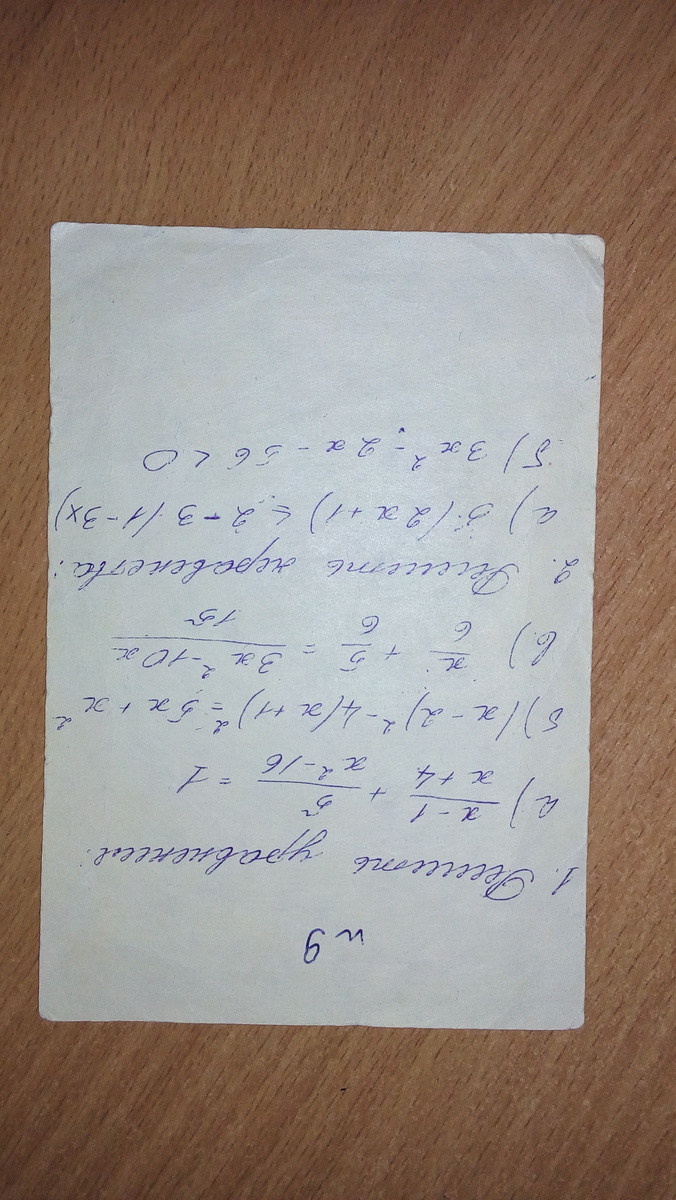 и 9
1. Решить уравнения:
а) (x-1)/(x+4) + 5/(x²-16) = 1
б) (x-2)² - 4(x+1)² = 5x + x²
в) x/6 + 5/6 = (3x²-10x)/15
2. Решить неравенства:
а) 5(2x+1) ≤ 2 - 3(1-3x)
б) 3x² - 2x - 56 < 0